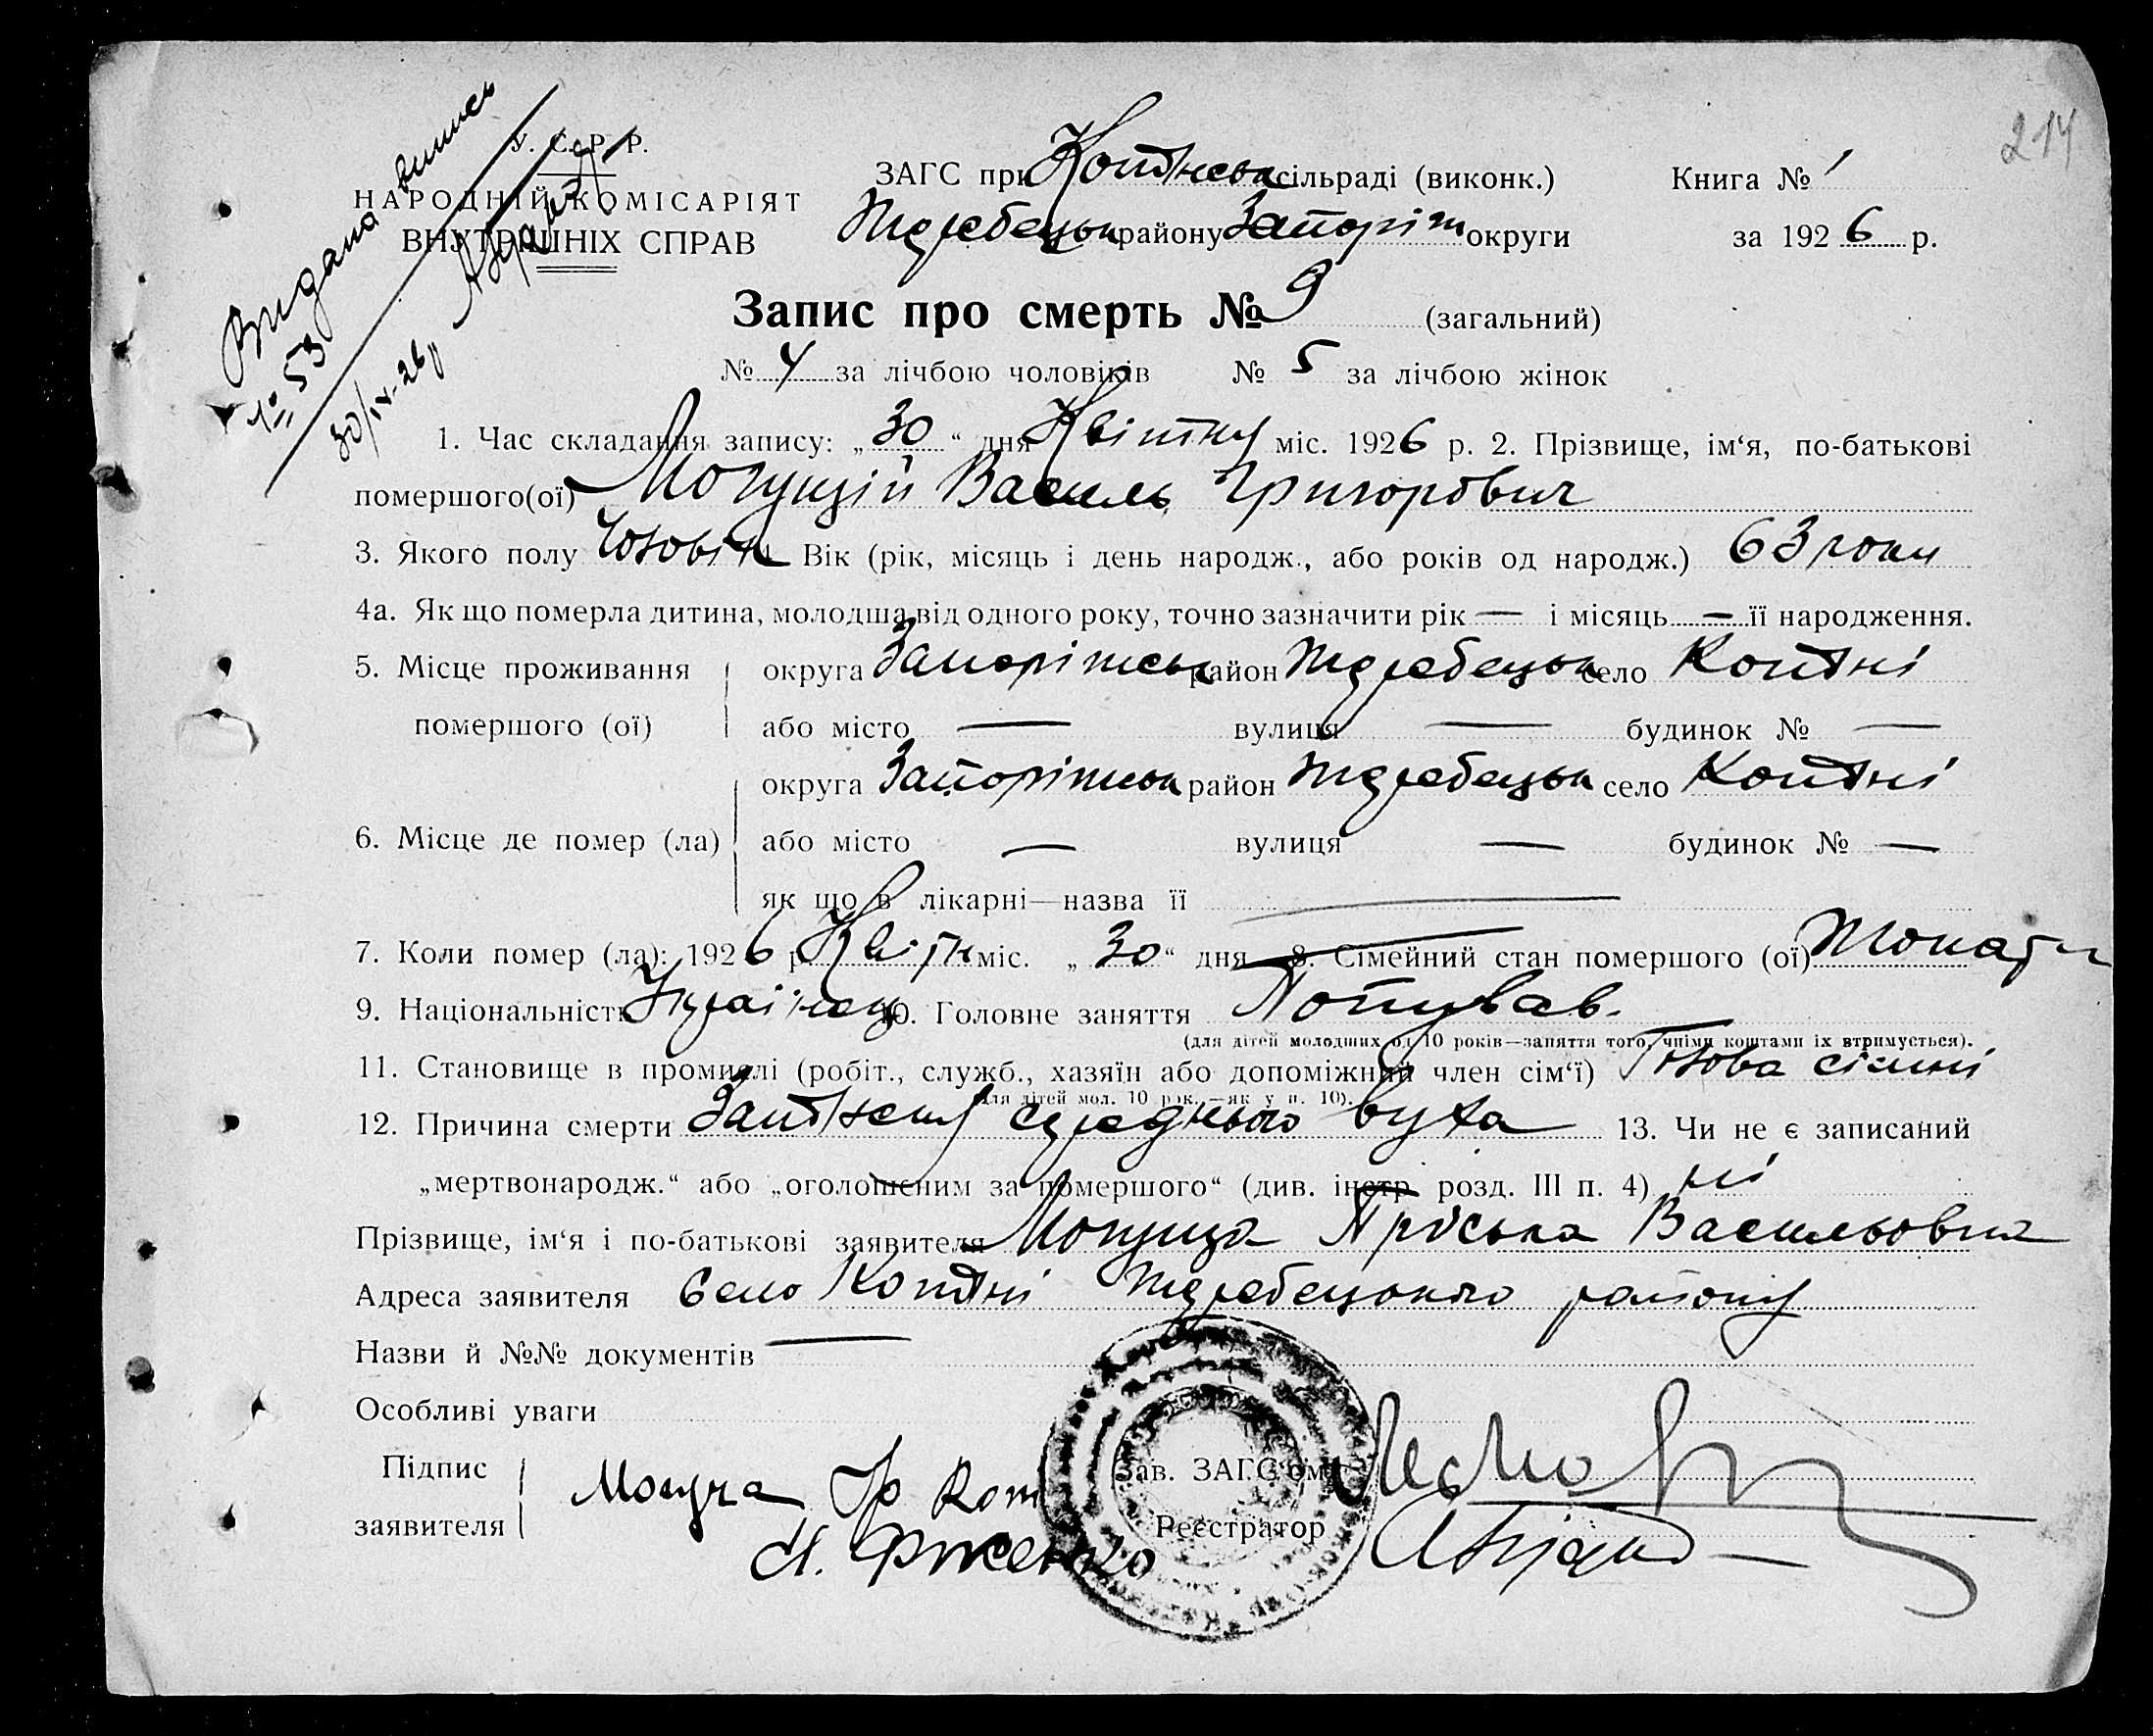 214
Видана виписъ
№ 53
30/IV-26р
У. С. Р. Р.
НАРОДНІЙ КОМІСАРІЯТ
ВНУТРІШНІХ СПРАВ
ЗАГС при Копанськ сільраді (виконк.)
Жеребецьк району Запоріж округи
Книга № 1
за 1926 р.
Запис про смерть № 9 (загальний)
№ 4 за лічбою чоловіків № 5 за лічбою жінок
1. Час складання запису: „30“ дня Квітня міс. 1926 р. 2. Прізвище, ім‘я, по-батькові
помершого(ої) Могущій Василь Григорович
3. Якого полу Чоловік 4. Вік (рік, місяць і день народж., або років од народж.) 63 роки
4а. Як що померла дитина, молодша від одного року, точно зазначити рік — і місяць — її народження.
5. Місце проживання помершого (ої)
округа Запоріжськ район Жеребецьк село Копані
або місто — вулиця — будинок № —
6. Місце де помер (ла)
округа Запоріжськ район Жеребецьк село Копані
або місто — вулиця — будинок № —
як що в лікарні—назва її —
7. Коли помер (ла): 1926 р. Квітн міс. „30“ дня 8. Сімейний стан помершого (ої) Жонатн
9. Національність Українец 10. Головне заняття
(для дітей молодших од 10 років—заняття того, чиїми коштами їх втримується).
11. Становище в промислі (робіт., служб., хазяїн або допоміжний член сім‘ї) Голова сімї
(для дітей мол. 10 рок.—як у п. 10).
12. Причина смерти Запалення середнього вуха 13. Чи не є записаний
„мертвонародж.“ або „оголошеним за помершого“ (див. інстр. розд. III п. 4) ні
Прізвище, ім‘я і по-батькові заявителя Могуща Пріська Васильовна
Адреса заявителя Село Копані Жеребецького району
Назви й №№ документів —
Особливі уваги
Підпис заявителя
Зав. ЗАГС‘ом
Реєстратор